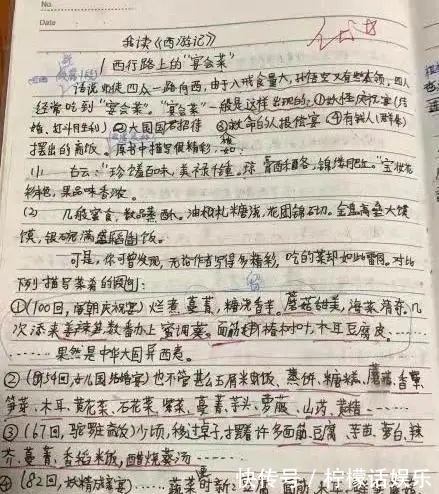 No.
Date
我读《西游记》
1 西行路上的"宴会菜"
话说师徒四众一路向西,由于八戒食量大,孙悟空又有些本领,四人
经常吃到"宴会菜"。"宴会菜"一般是这样出现的:①妖怪庆忙宴(结
婚、打斗胜利)②大国国君招待 ③救命的人报偿宴 ④有钱人(群众)
摆出的斋饭。原书中描写很精彩,如:
(1) 白云:"珍馐百味,美禄千钟。琼膏酥酪,锦缕肥红。"宝妆花
彩艳,果品味香浓。
(2) 几般蜜食,数品蒸酥。油札糖浇,花团锦砌。金盘高垒大馍
馍,银碗满盛稻饭。
可是,你可曾发现,无论作者写得多精彩,吃的菜却如此雷同。对比
下列描写菜肴的段间:
①(100回,唐朝庆祝宴)烂煮蔓菁,糖浇香芋。蘑菇甜美,海菜清奇。几
次添来姜辣笋,数番办上蜜调葵。面筋椿树叶,木耳豆腐皮。……
……果然是中华大国异西夷。
②(第54回,女儿国结婚宴)也不管甚么玉屑米饭、蒸饼、糖糕、蘑菇、香蕈、
笋芽、木耳、黄花菜、石花菜、紫菜、蔓菁、芋头、萝菔、山药、黄精……
③(67回,驼罗庄斋饭)少顷,移过桌子,摆着许多面筋、豆腐、芋苗、萝白、辣
芥、蔓菁、香稻米饭,醋烧葵汤……
④(82回,妖精成婚宴)……蔬菜更时新:豆腐、面筋、木耳、
快传号 / 柠檬话娱乐